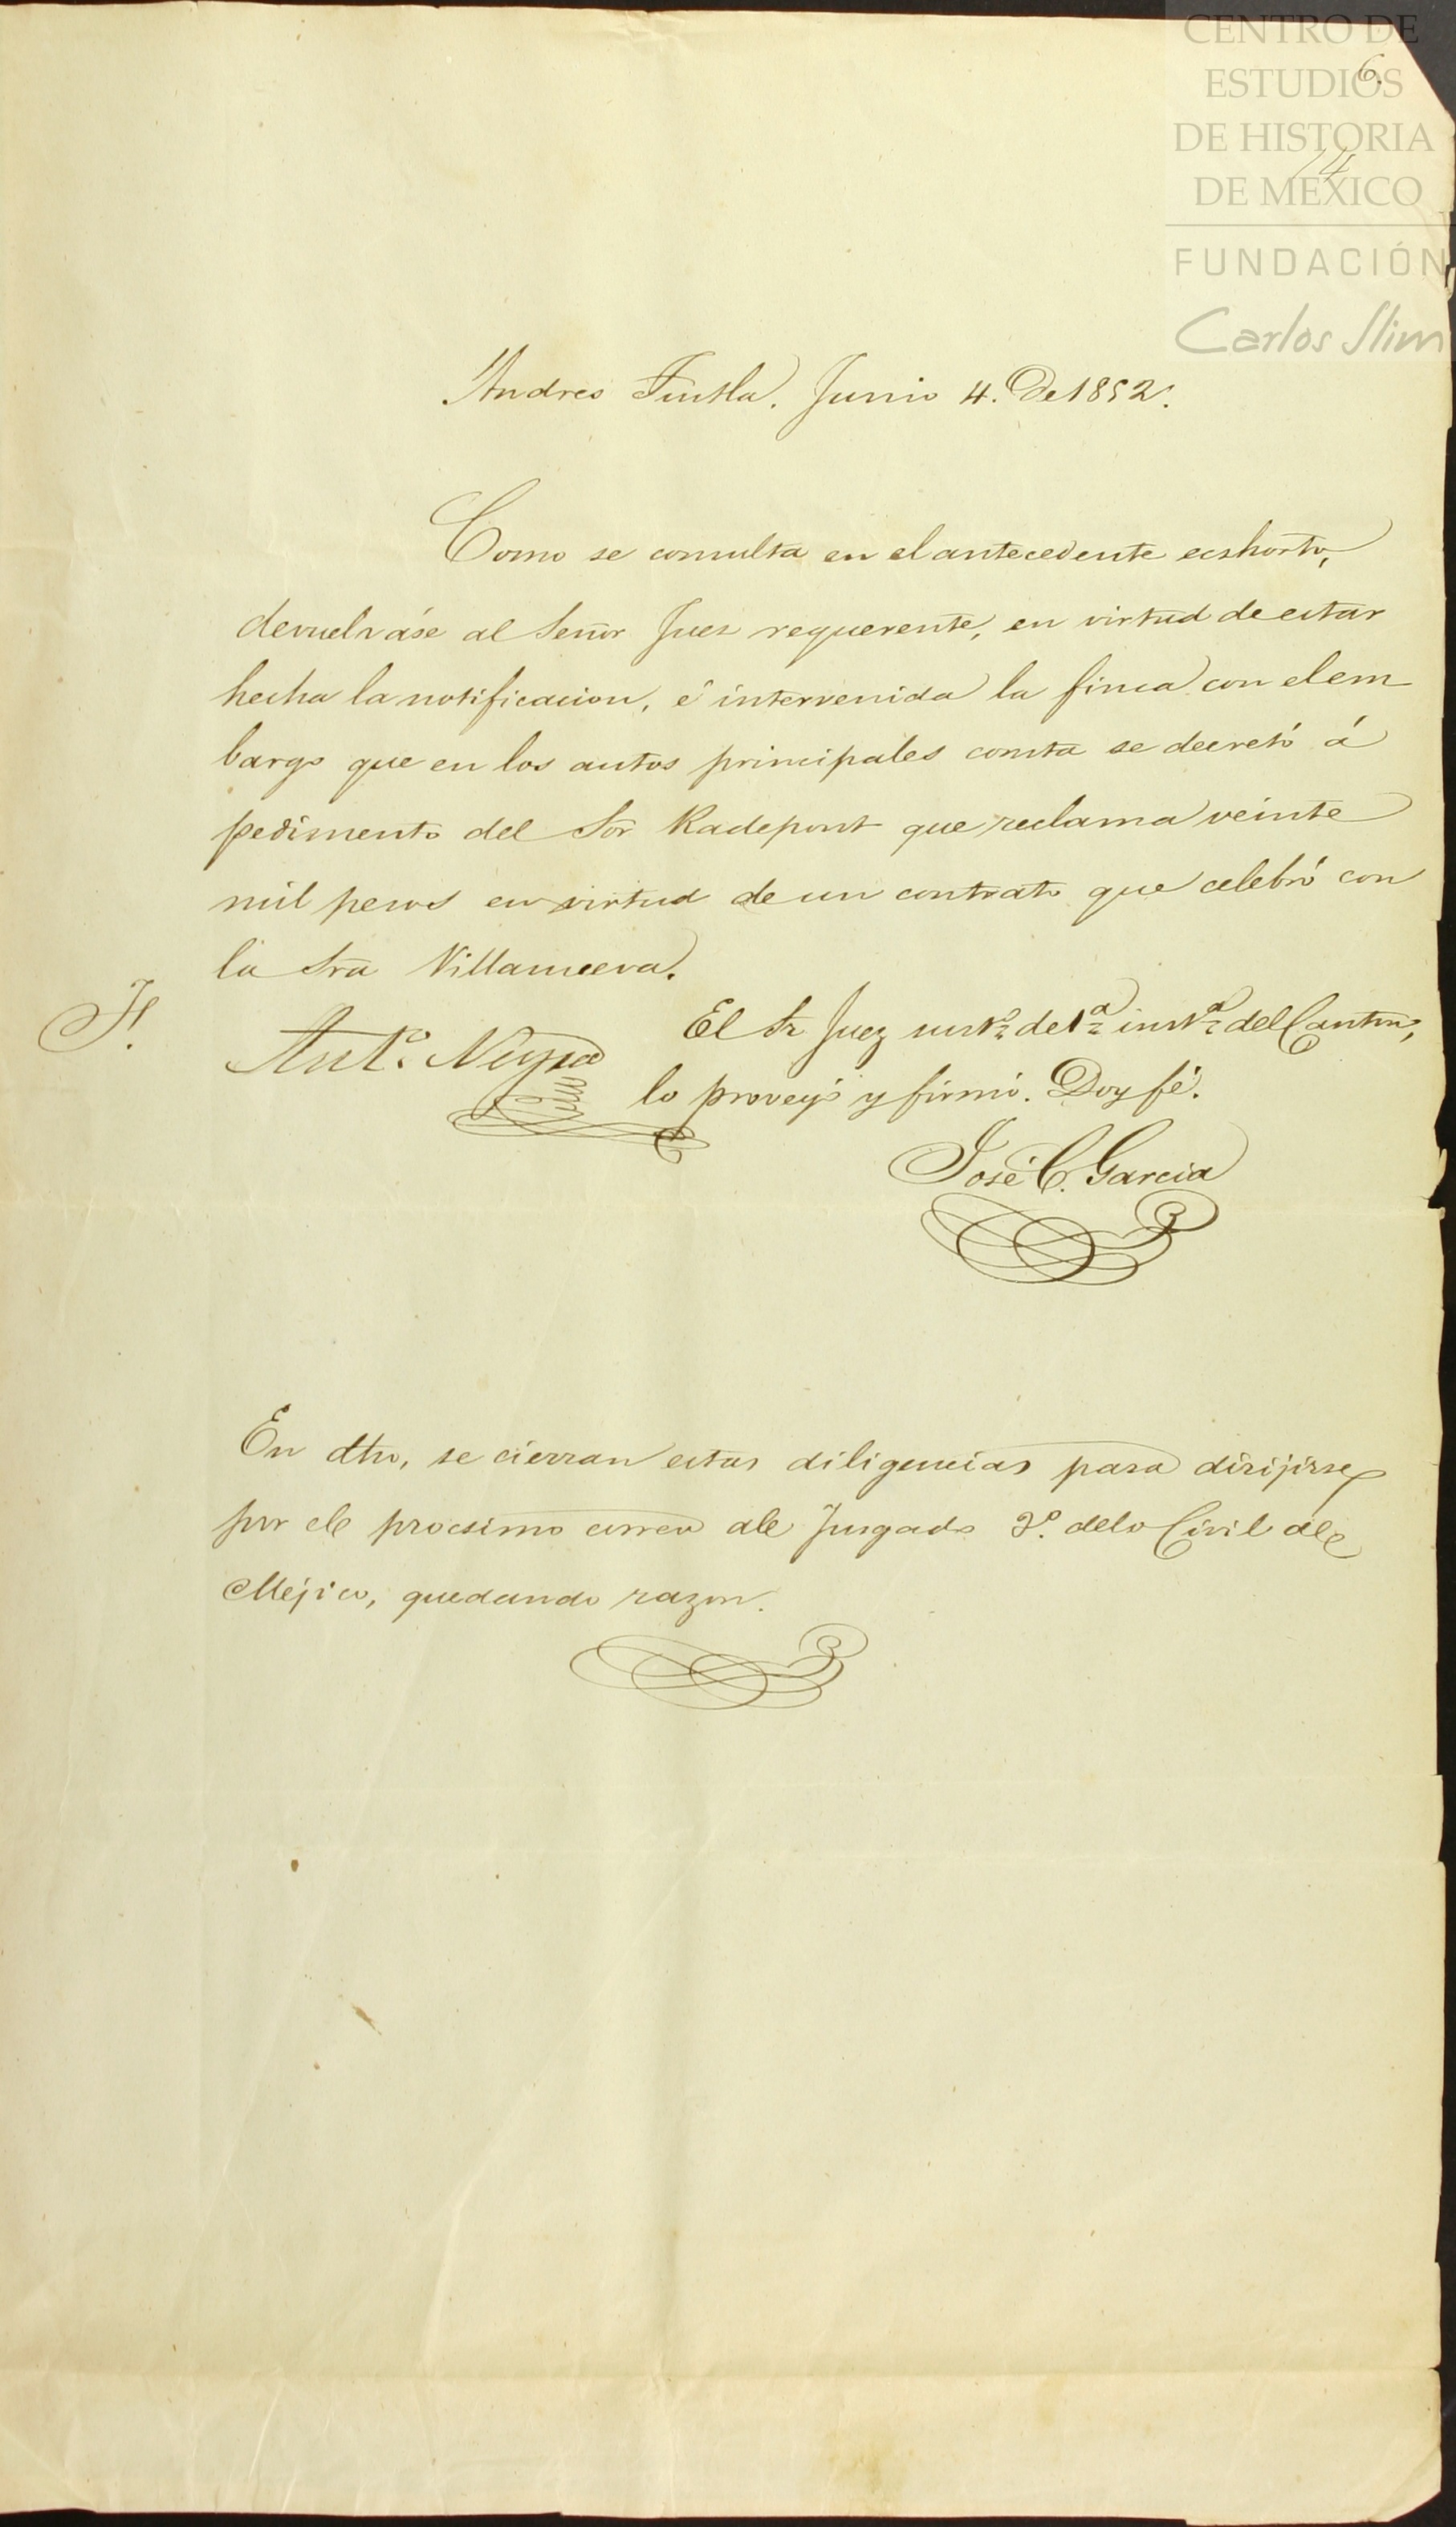 CENTRO DE
ESTUDIOS
DE HISTORIA
DE MEXICO
FUNDACIÓN
Carlos Slim
6.
14
Andres Tuxtla. Junio 4. De 1852.
Como se consulta en el antecedente ecshorto,
devuelváse al Señor Juez requerente, en virtud de estar
hecha la notificacion, é intervenida la finca con el em
bargo que en los autos principales consta se decretó á
pedimento del Sor Radepont que reclama veinte
mil pesos en virtud de un contrato que celebró con
la Sra Villanueva.
El Sr Juez de 1ª instª del Canton,
Antº.
lo proveyó y firmó. Doy fé.
José C. Garcia
En dho, se cierran estas diligencias para dirijirse
por el procsimo correo al Jusgado 3º. delo Civil de
Méjico, quedando razon.